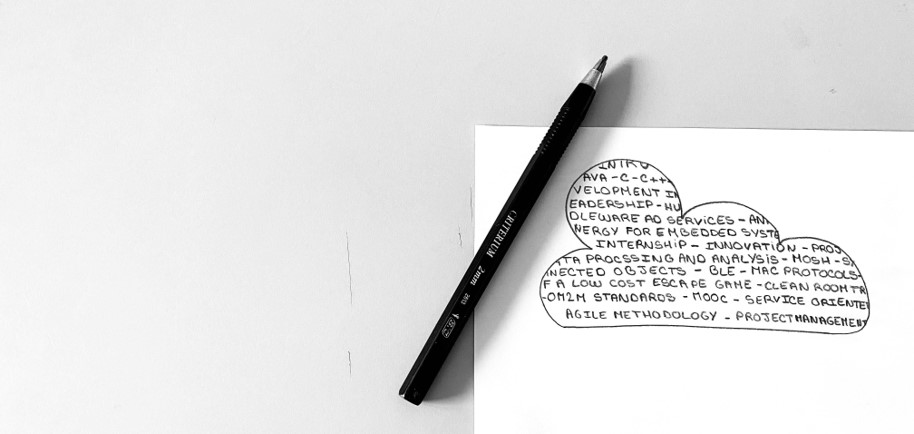 CRITERIUM 2mm 2613
INTRO
AVA - C - C++
VELOPMENT IN
EADERSHIP - HU
DLEWARE AD SERVICES - AN
NERGY FOR EMBEDDED SYSTE
INTERNSHIP - INNOVATION - PROJ
ATA PROCSSING AND ANALYSIS - MOSH - S
NNECTED OBJECTS - BLE - MAC PROTOCOLS-
F A LOW COST ESCAPE GAME - CLEAN ROOM TR
-OM2M STANDARDS - MOOC - SERVICE ORIENTE
AGILE METHODOLOGY - PROJECT MANAGEMENT